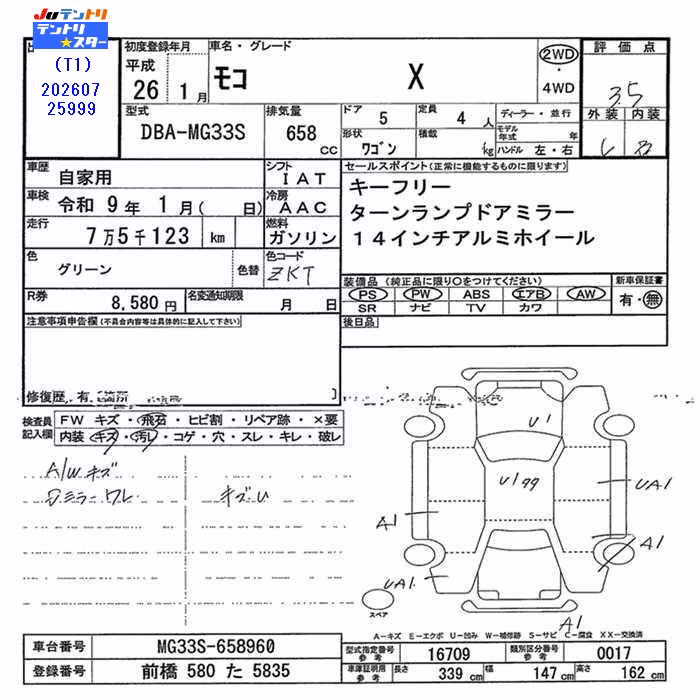 JUテントリ
テントリ★スター
(T1)
202607
25999
初度登録年月
平成
26 1月
車名・グレード
モコ X
2WD
・
4WD
評価点
3.5
外装 内装
型式
DBA-MG33S
排気量
658
cc
ドア 5
定員 4 人
形状 ワゴン
積載 kg
ディーラー・並行
モデル年式 年
ハンドル 左・右
車歴
自家用
シフト
IAT
車検
令和 9年 1月( 日)
冷房
AAC
走行
7万5千123 km
燃料
ガソリン
色
グリーン
色替
色コード
ZKT
R券
8,580円
名変通知期限
月 日
セールスポイント(正常に機能するものに限ります)
キーフリー
ターンランプドアミラー
14インチアルミホイール
装備品 (純正品に限り○をつけてください)
PS PW ABS エアB AW
SR ナビ TV カワ
新車保証書
有・無
後日品
注意事項申告欄(不具合内容等は具体的に記入して下さい)
修復歴 有 箇所
検査員記入欄
FW キズ・飛石・ヒビ割・リペア跡・×要
内装 キズ・汚レ・コゲ・穴・スレ・キレ・破レ
A/Wキズ
キズU
U1
U199
UA1
A1
A1
UA1
A1
スペア
A-キズ E-エクボ U-凹み W-補修跡 S-サビ C-腐食 XX-交換済
車台番号 MG33S-658960
登録番号 前橋 580 た 5835
型式指定番号 参考 16709
類別区分番号 参考 0017
車庫証明用 参考 長さ 339 cm 幅 147 cm 高さ 162 cm